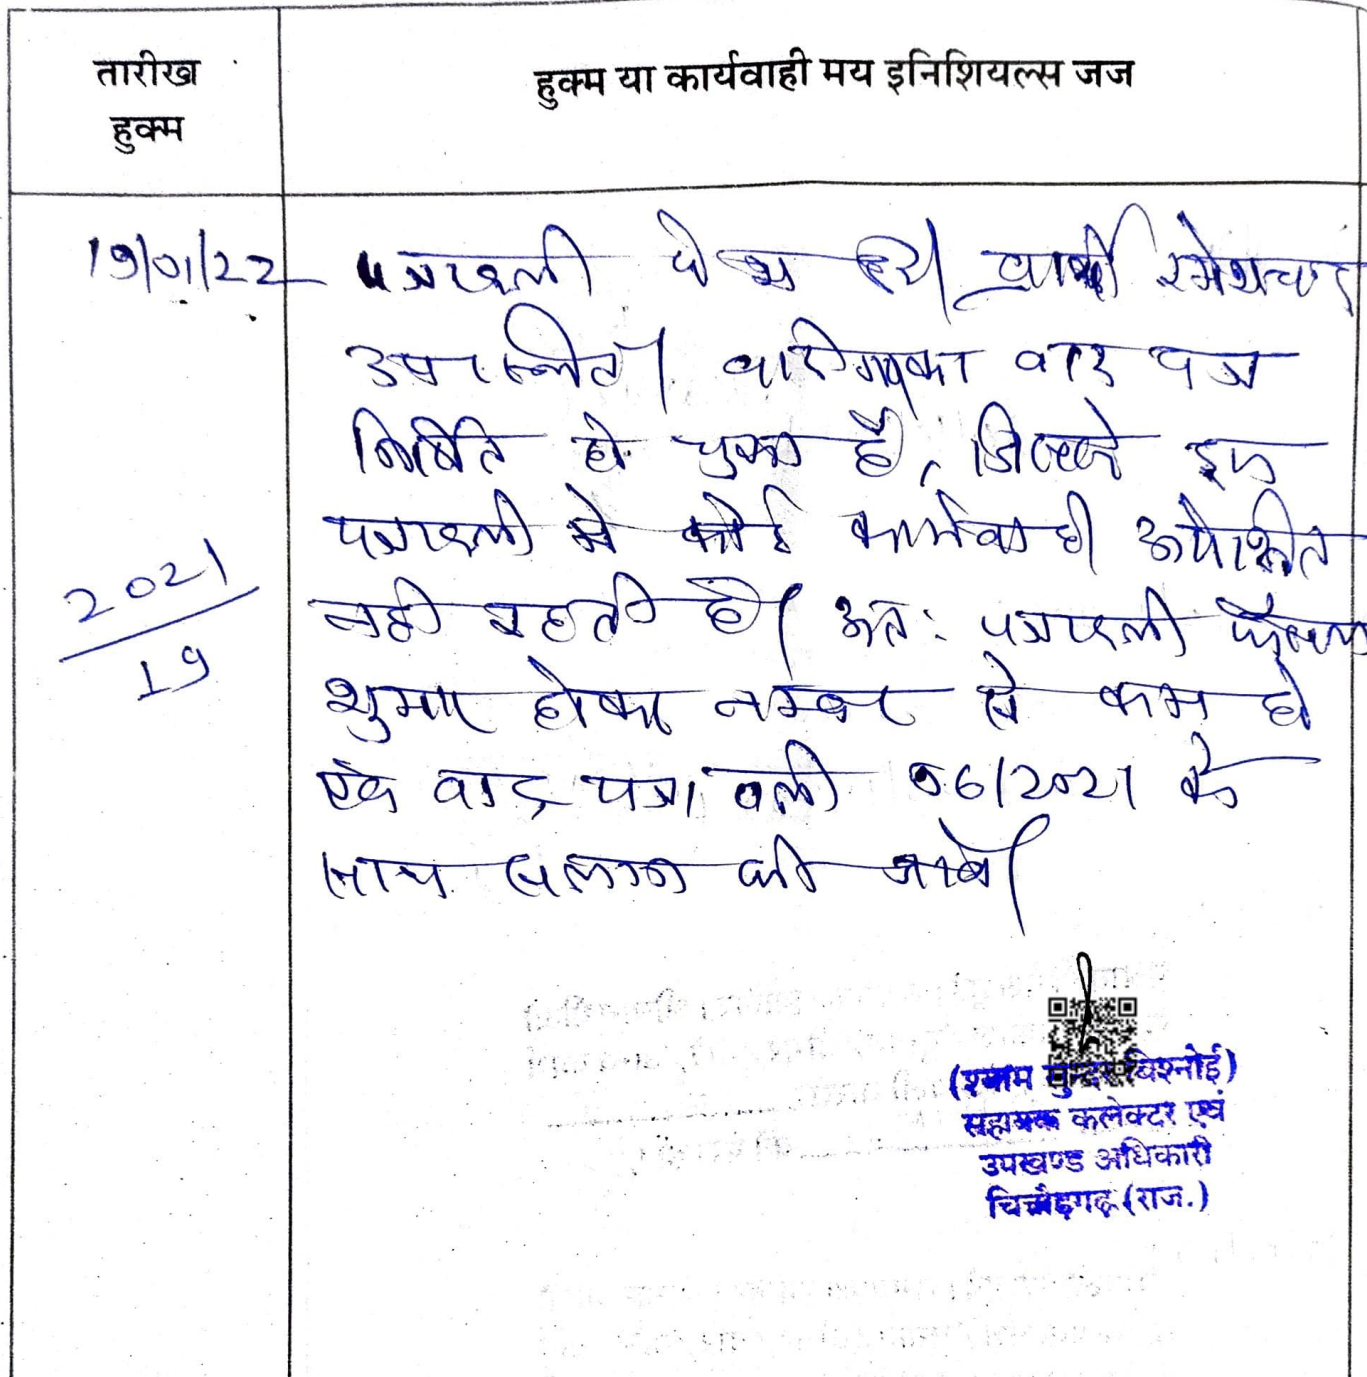 तारीख
हुक्म
हुक्म या कार्यवाही मय इनिशियल्स जज
19/01/22
पत्रावली पेश हुयी। प्रार्थी रमेशचन्द्र
उपस्थित। वादीगण का वाद पत्र
निर्णित हो चुका है, जिससे इस
पत्रावली मे कोई कार्यवाही अपेक्षित
नही रहती है। अतः पत्रावली फैसल
शुमार होकर नम्बर से कम हो
एवं वाद पत्रावली 96/2021 के
साथ संलग्न की जावे।
2021
19
(श्याम सुन्दर विश्नोई)
सहायक कलेक्टर एवं
उपखण्ड अधिकारी
चित्तौड़गढ़ (राज.)